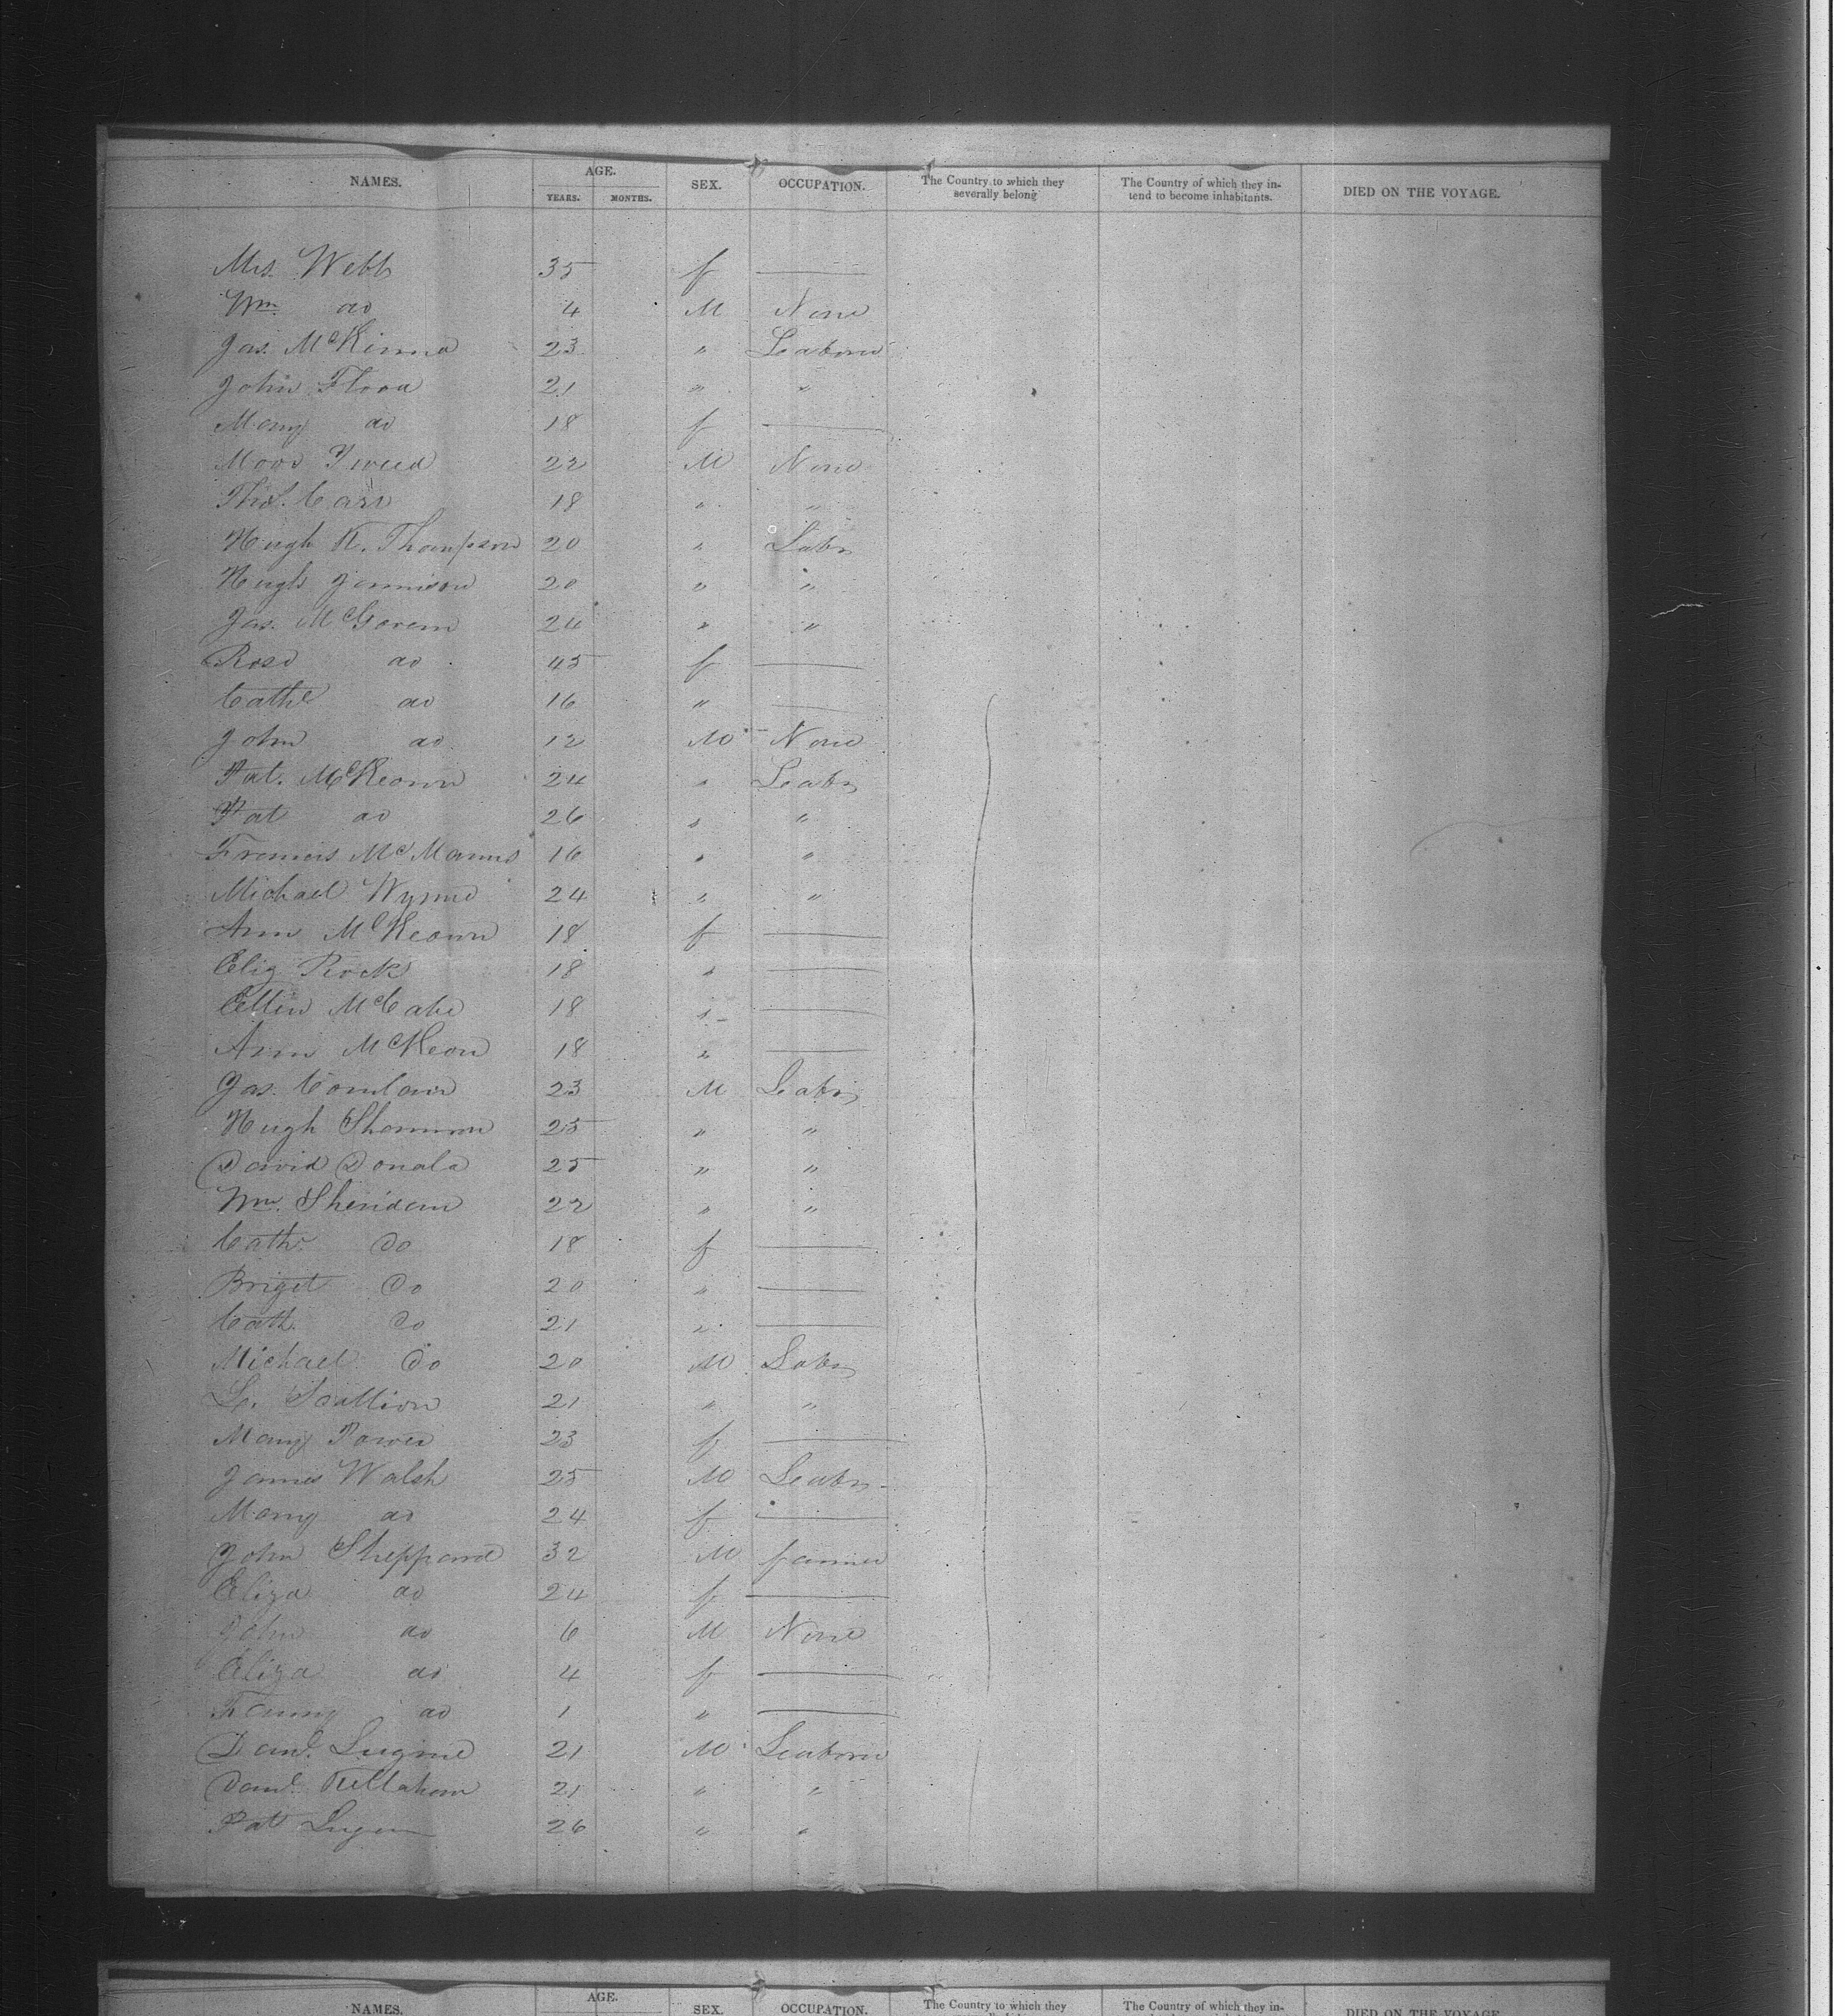 NAMES. AGE. SEX. OCCUPATION. The Country to which they severally belong The Country of which they intend to become inhabitants. DIED ON THE VOYAGE.
YEARS. MONTHS.
Mrs. Webb 35 f
Wm. do 4 M None
Jas. McKinna 23 " Laborer
John Flood 21 " "
Mary do 18 f
Tweed 22 M None
Thos. Carr 18 " "
Hugh R. Thompson 20 " Labr
Hugh Jamison 20 " "
Jas. McGovern 24 " "
Rose do 45 f
Cathe do 16 "
John do 12 M None
Pat. McKeown 24 " Labr
Pat do 26 " "
Francis McManus 16 " "
Michael Wynne 24 " "
Ann McKeown 18 f
Eliz Rock 18 "
Ellen McCabe 18 "
Ann McKeon 18 "
Jas. 23 M Labr
Hugh Shannon 25 " "
David Donald 25 " "
Wm. Sheridan 22 " "
Cath. Do 18 f
Briget Do 20 "
Cath. Do 21 "
Michael Do 20 M Labr
L. Scullion 21 " "
Mary Power 23 f
James Walsh 25 M Labr
Mary do 24 f
John Sheppard 32 M farmer
Eliza do 24 f
John do 6 M None
Eliza do 4 f
Fanny do 1 "
Danl. 21 M Laborer
Danl. 21 " "
Pat 26 " "
NAMES. AGE. SEX. OCCUPATION. The Country to which they The Country of which they in- DIED ON THE VOYAGE.